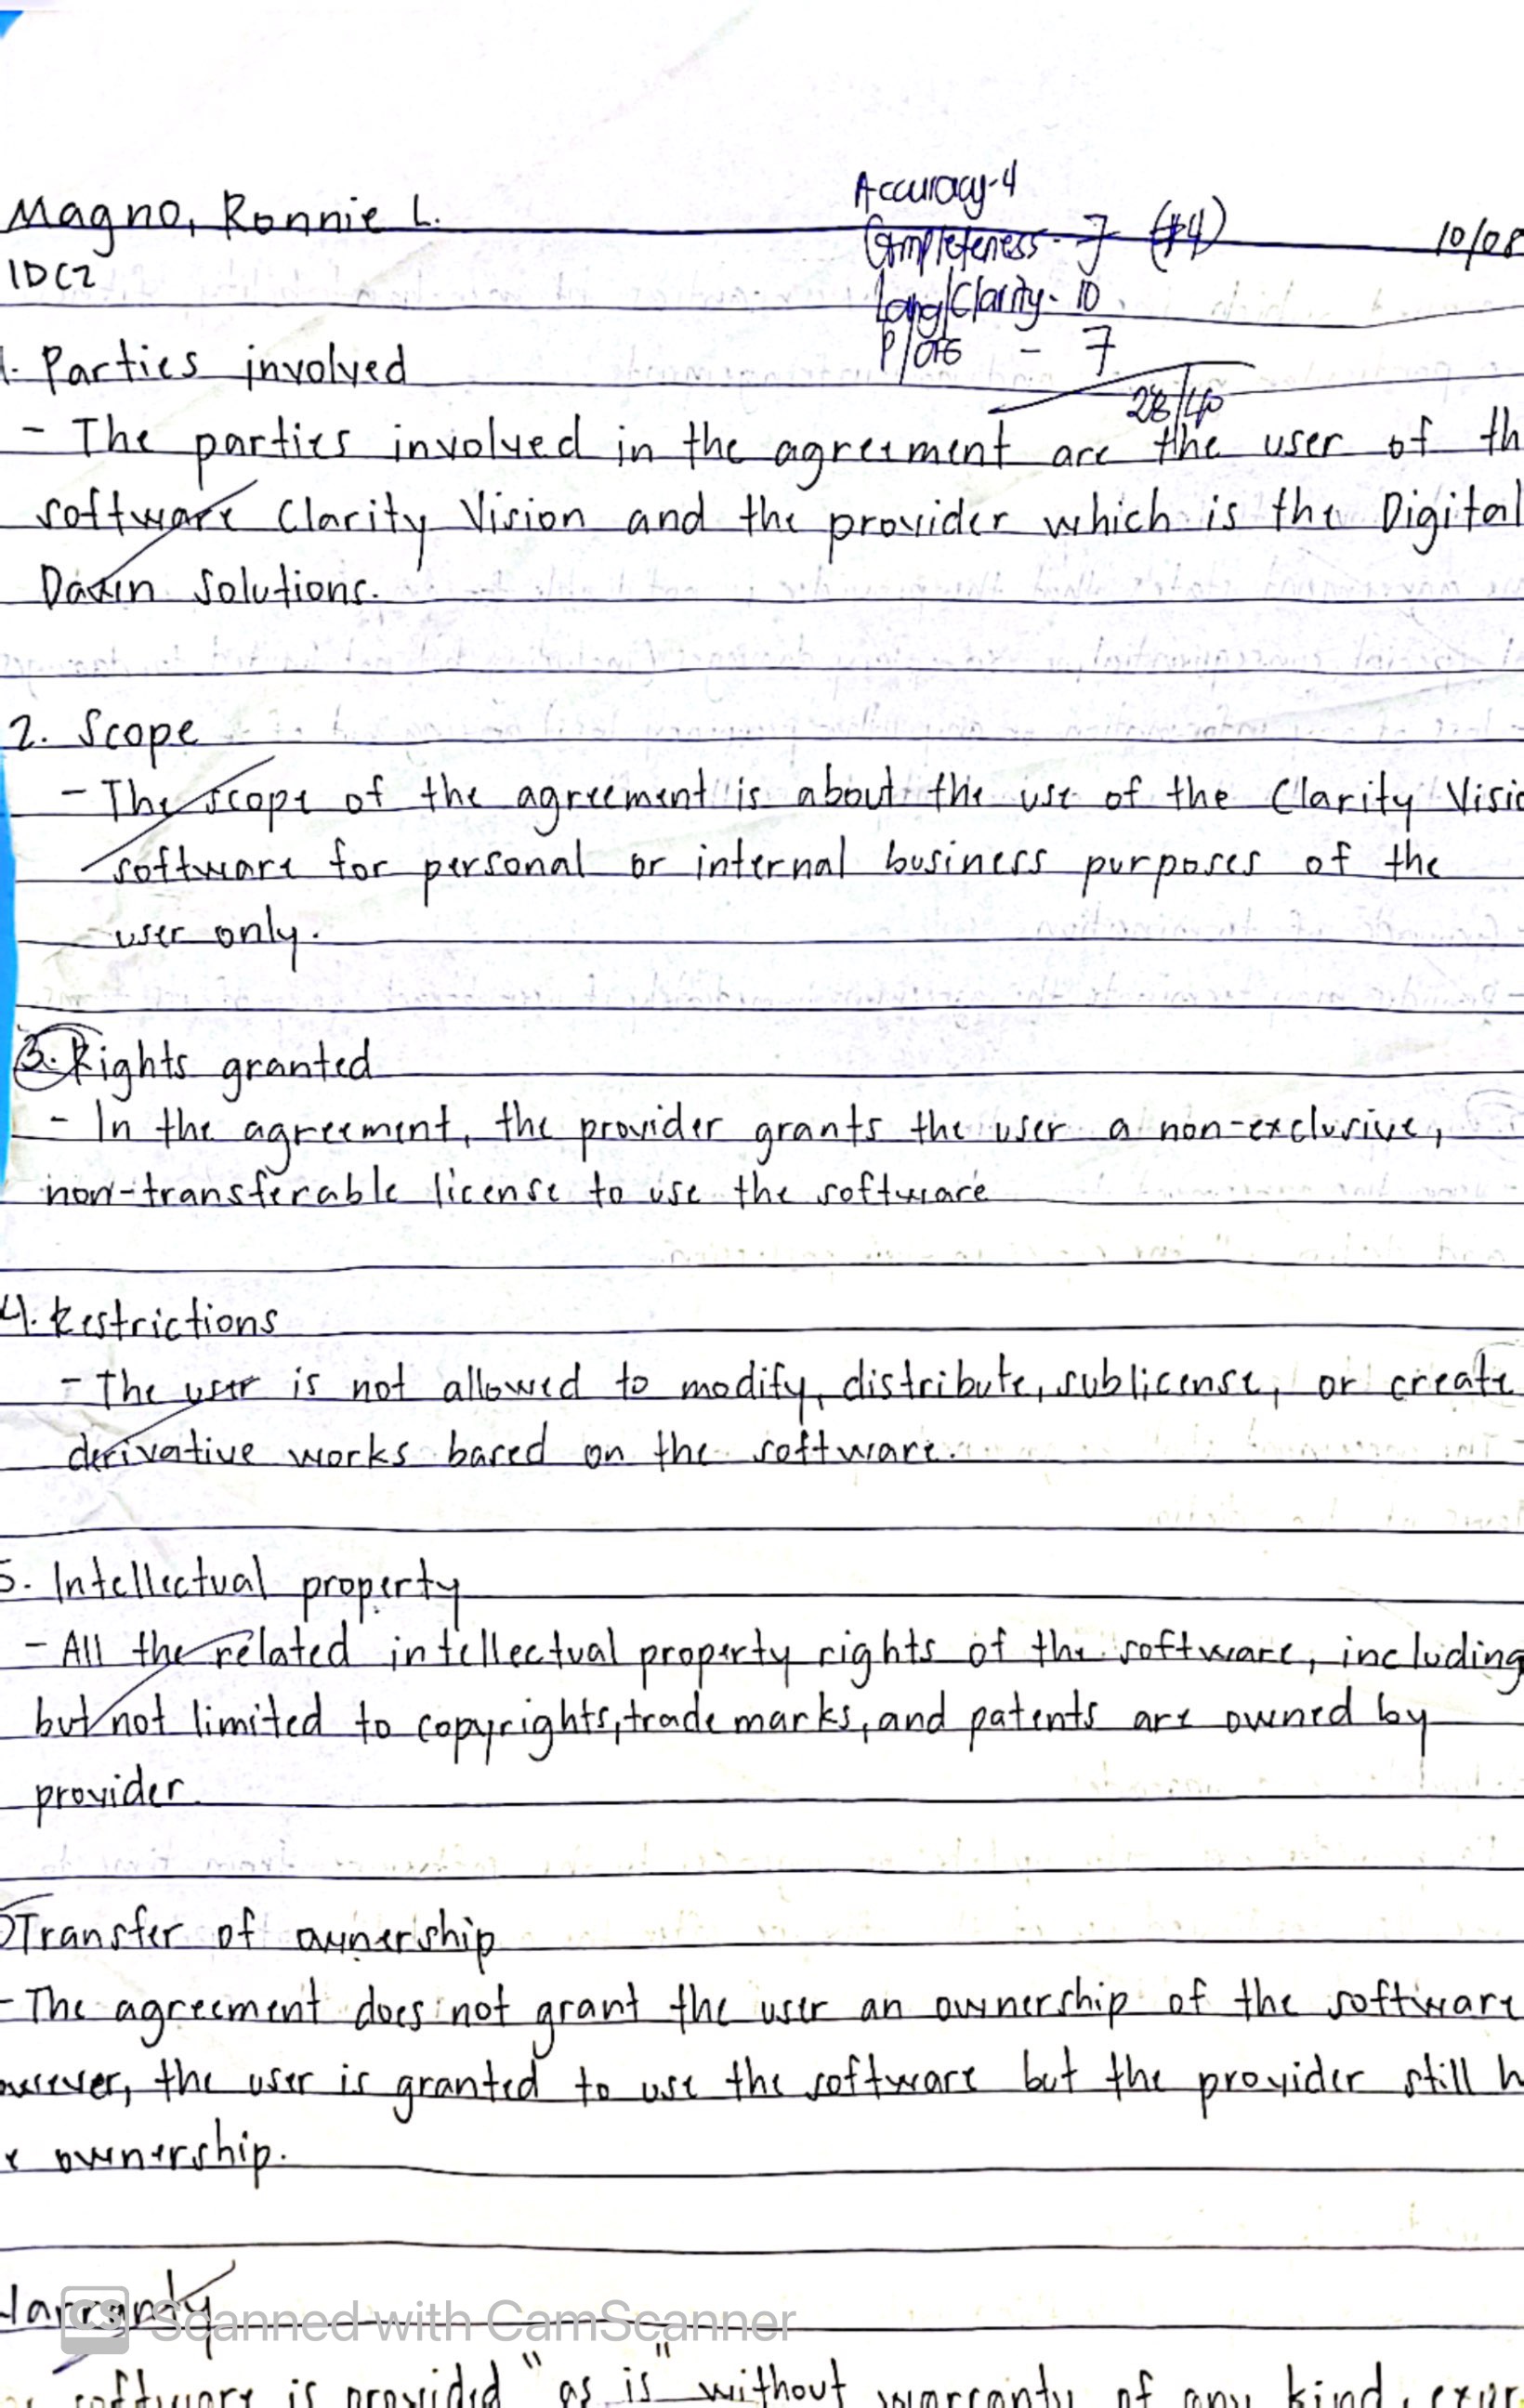 Accuracy-4
Magno, Ronnie L.
Completeness - 7 (#4)
10/08
1DC2
Lang/Clarity - 10
P/OFG - 7
28/40
1. Parties involved
- The parties involved in the agreement are the user of th
software Clarity Vision and the provider which is the Digital
Dawn Solutions.
2. Scope
- The scope of the agreement is about the use of the Clarity Visio
software for personal or internal business purposes of the
user only.
3. Rights granted
- In the agreement, the provider grants the user a non-exclusive,
non-transferable license to use the software
4. Restrictions
- The user is not allowed to modify, distribute, sublicense, or create
derivative works based on the software.
5. Intellectual property
- All the related intellectual property rights of the software, including
but not limited to copyrights, trade marks, and patents are owned by
provider.
Transfer of ownership
- The agreement does not grant the user an ownership of the software
owever, the user is granted to use the software but the provider still h
e ownership.
arranty
CS Scanned with CamScanner
software is provided "as is" without warranty of any kind, expr